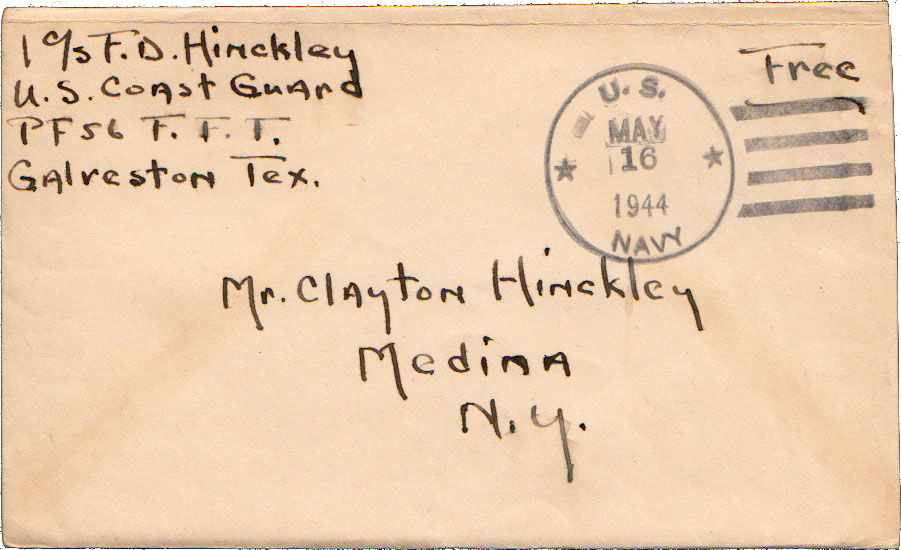 1 c/s F. D. Hinckley
U. S. Coast Guard
PF56 F. F. T.
Galveston Tex.
Free
U. S.
MAY
16
1944
NAVY
Mr. Clayton Hinckley
Medina
N. Y.